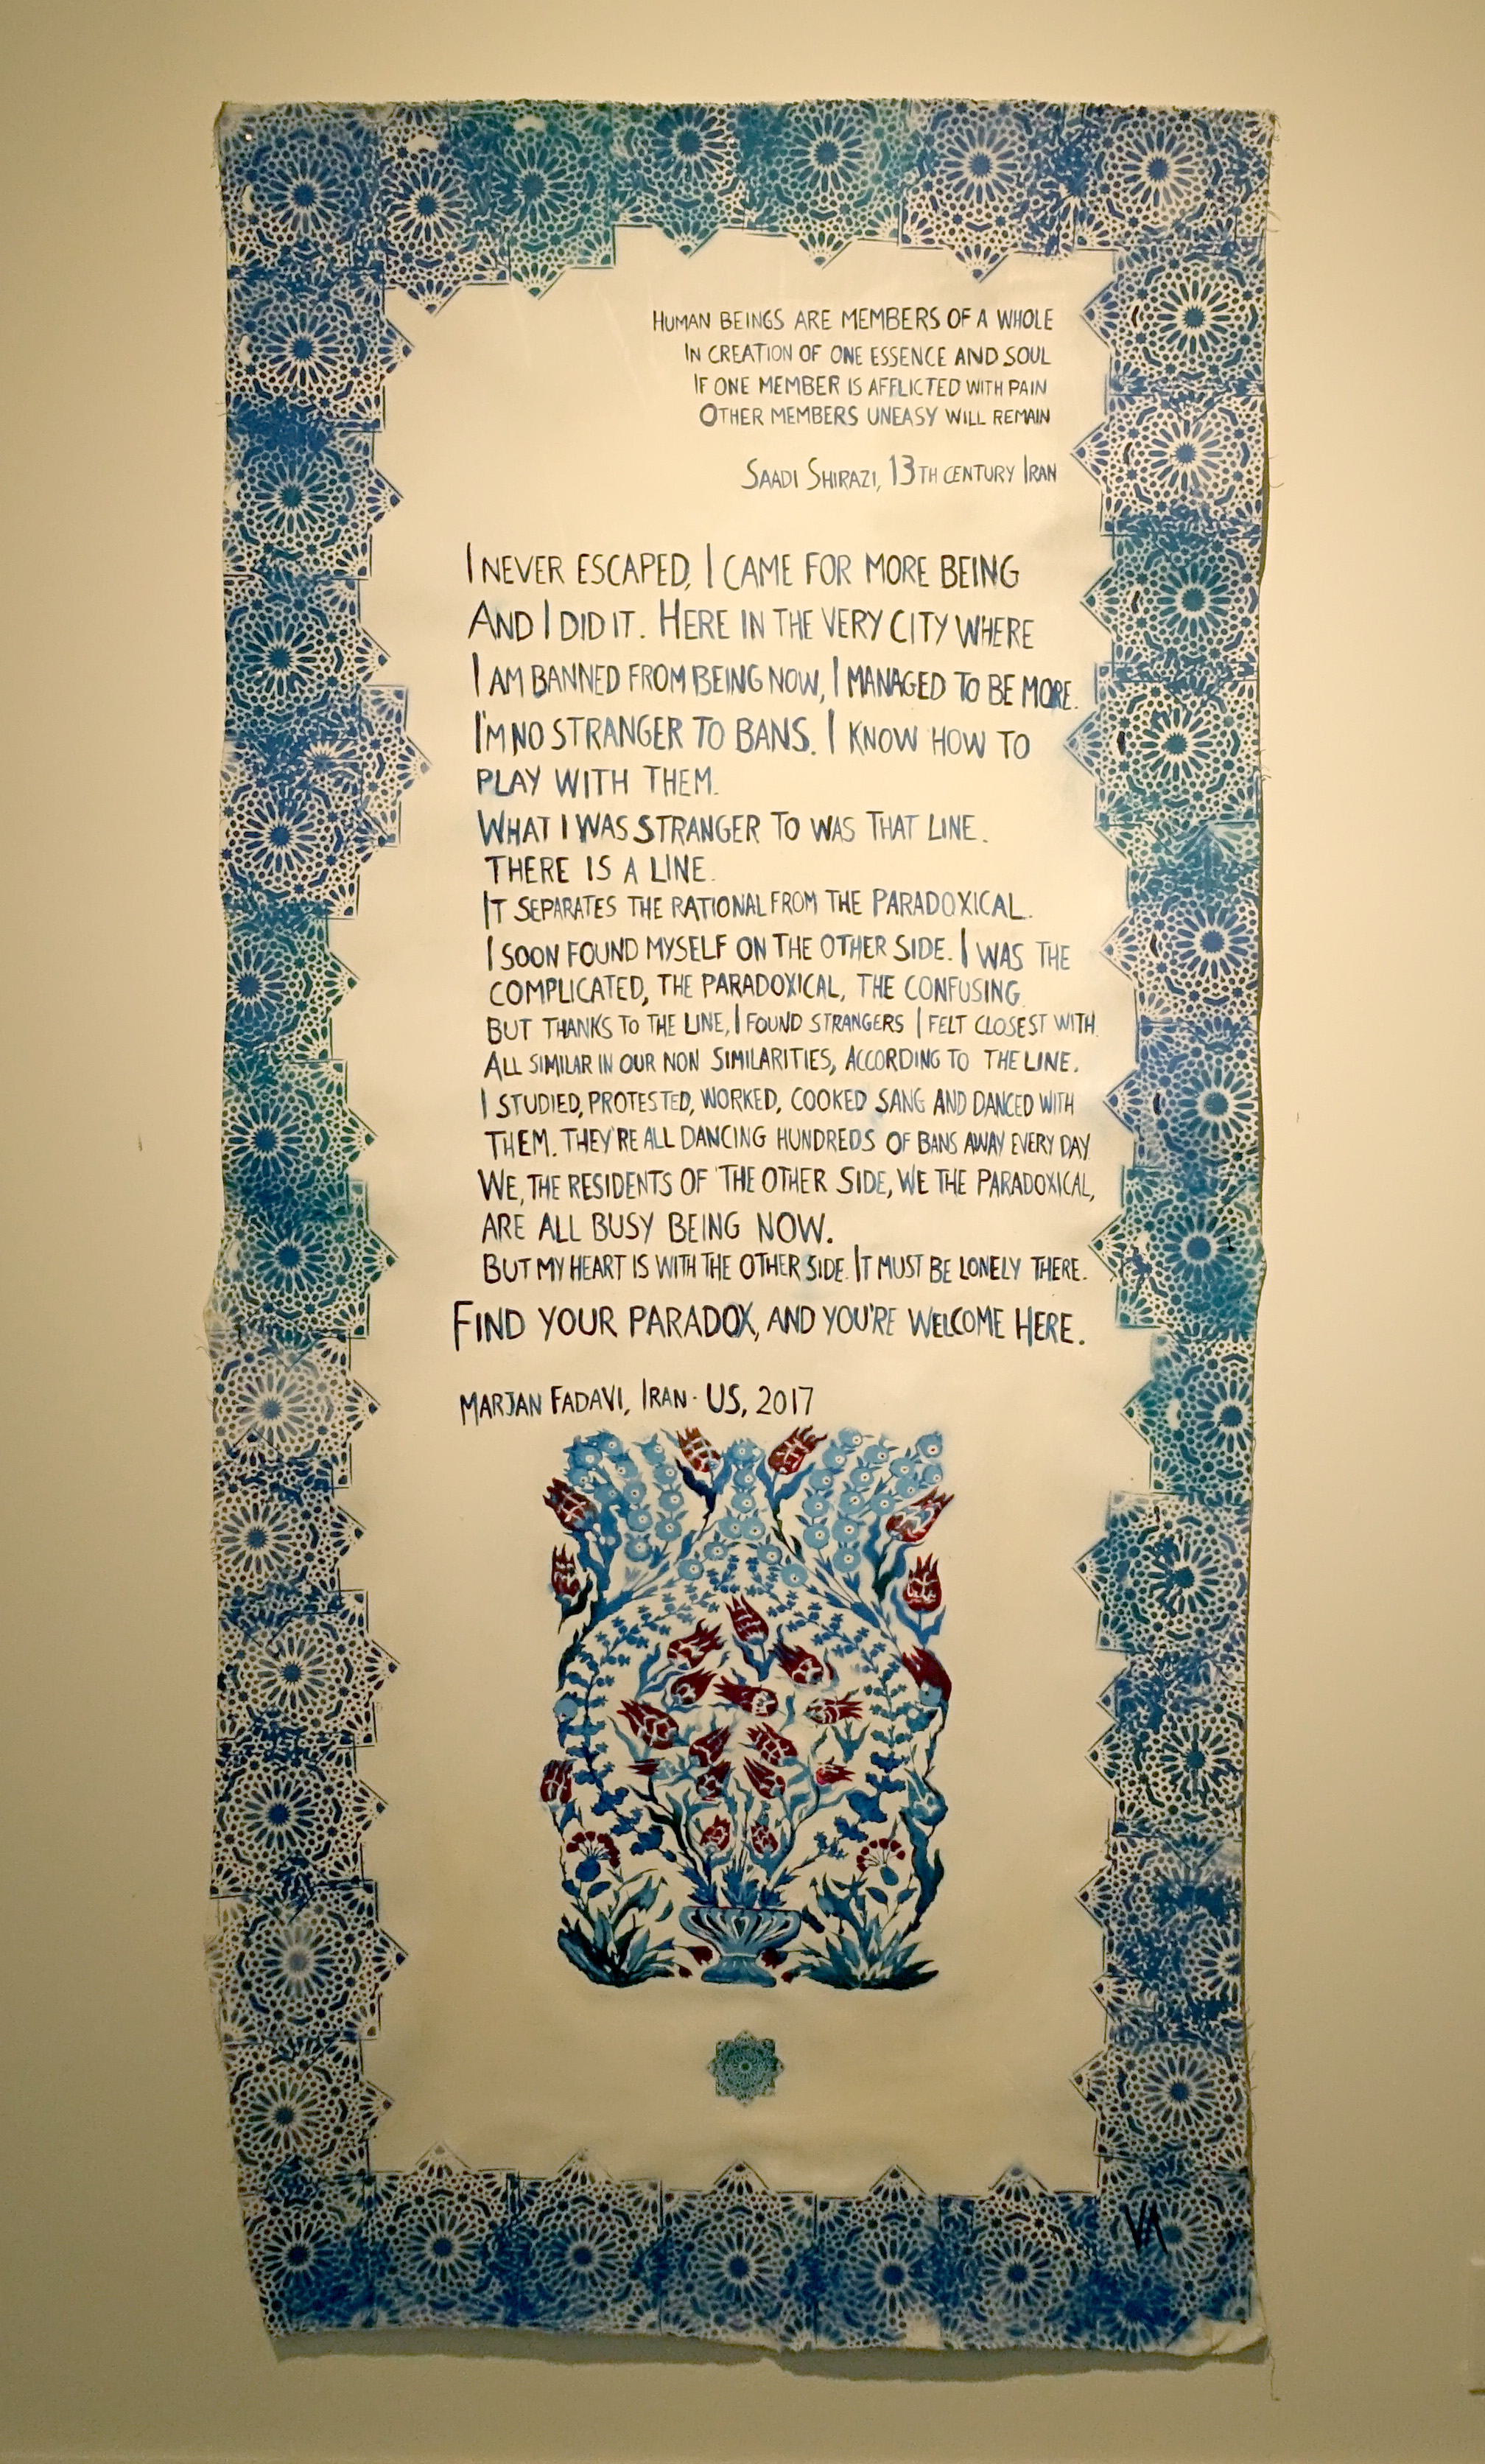 HUMAN BEINGS ARE MEMBERS OF A WHOLE
IN CREATION OF ONE ESSENCE AND SOUL
IF ONE MEMBER IS AFFLICTED WITH PAIN
OTHER MEMBERS UNEASY WILL REMAIN
SAADI SHIRAZI, 13TH CENTURY IRAN
I NEVER ESCAPED, I CAME FOR MORE BEING
AND I DID IT. HERE IN THE VERY CITY WHERE
I AM BANNED FROM BEING NOW, I MANAGED TO BE MORE.
I'M NO STRANGER TO BANS. I KNOW HOW TO
PLAY WITH THEM.
WHAT I WAS STRANGER TO WAS THAT LINE.
THERE IS A LINE.
IT SEPARATES THE RATIONAL FROM THE PARADOXICAL.
I SOON FOUND MYSELF ON THE OTHER SIDE. I WAS THE
COMPLICATED, THE PARADOXICAL, THE CONFUSING.
BUT THANKS TO THE LINE, I FOUND STRANGERS I FELT CLOSEST WITH.
ALL SIMILAR IN OUR NON SIMILARITIES, ACCORDING TO THE LINE.
I STUDIED, PROTESTED, WORKED, COOKED SANG AND DANCED WITH
THEM. THEY'RE ALL DANCING HUNDREDS OF BANS AWAY EVERY DAY.
WE, THE RESIDENTS OF THE OTHER SIDE, WE THE PARADOXICAL,
ARE ALL BUSY BEING NOW.
BUT MY HEART IS WITH THE OTHER SIDE. IT MUST BE LONELY THERE.
FIND YOUR PARADOX, AND YOU'RE WELCOME HERE.
MARJAN FADAVI, IRAN - US, 2017